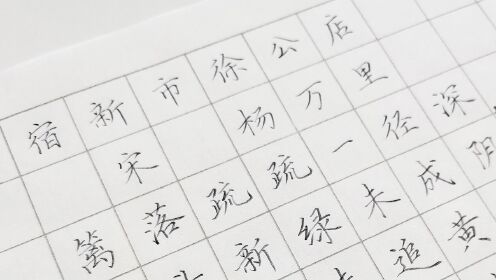 宿新市徐公店
宋 杨万里
篱落疏疏一径深
新绿未成阴
追黄